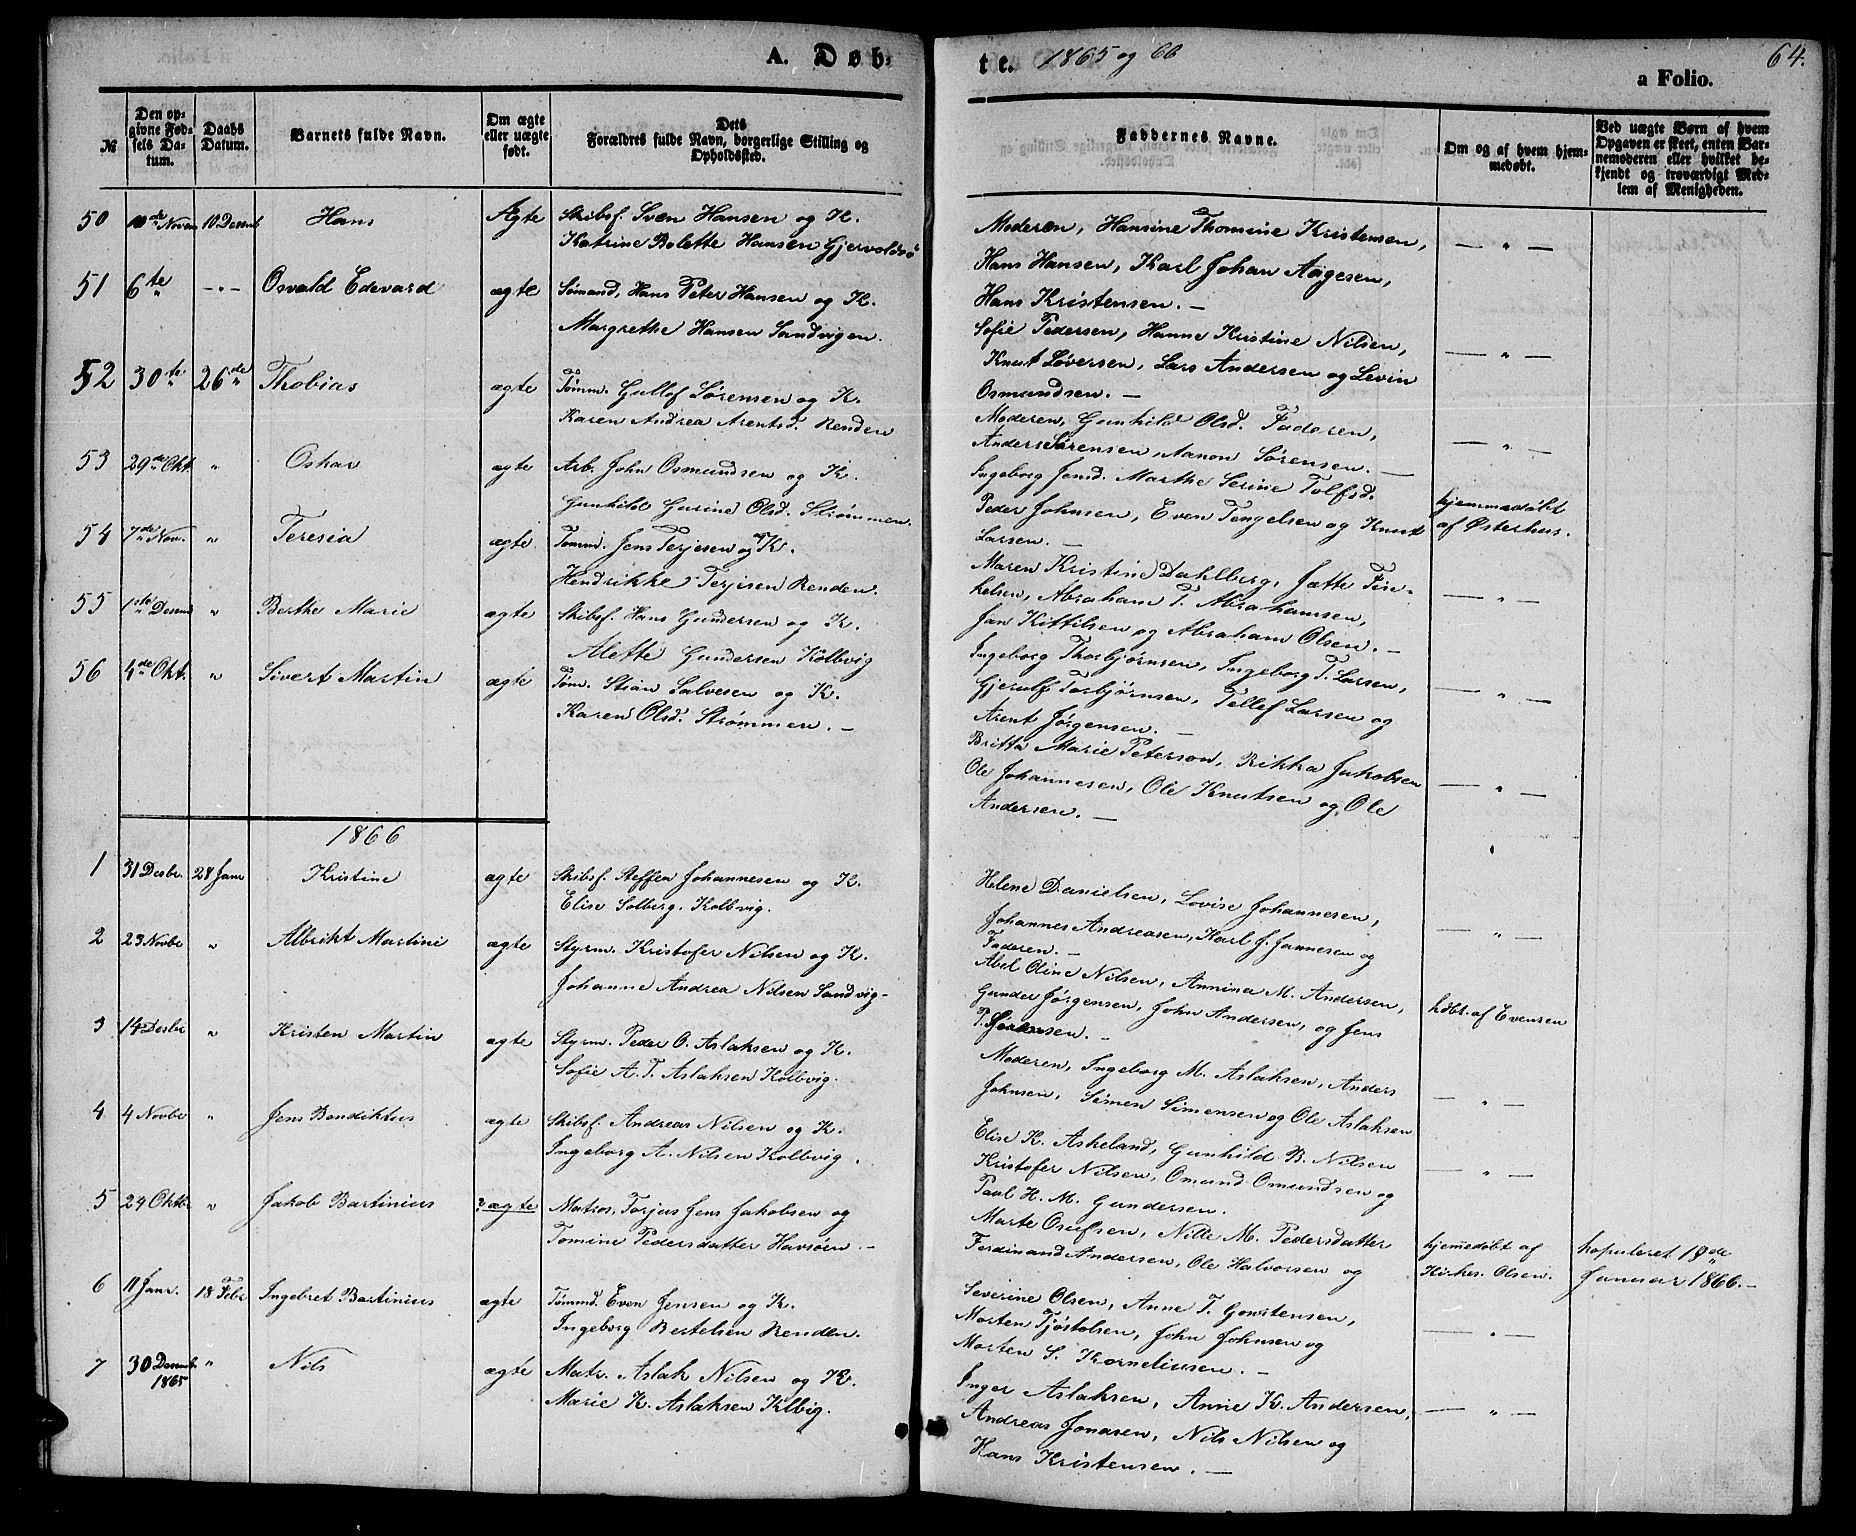 A. Døb-
te. 1865 og 66
64.
a Folio.
№
Den op-
givne Fød-
sels Da-
tum.
Daabs
Datum.
Barnets fulde Navn.
Om ægte
eller uægte
født.
Dets
Forældres fulde Navn, borgerlige Stilling og
Opholdssted.
Faddernes Navne.
Om og af hvem hjem-
medøbt.
Ved uægte Børn af hvem
Opgaven er skeet, enten Bar-
nemoderen eller hvilket be-
kjendt og troværdigt Med-
lem af Menigheden.
50 10de Novem 10 Desemb Hans Ægte Skibsf. Sven Hansen og K.
Katrine Bolette Hansen Gjervoldsø
Moderen, Hansine Thomine Kristensen, — " —
Hans Hansen, Karl Johan Aagesen,
Hans Kristensen. —
51 6te " — " — Osvald Edevard ægte Sømand, Hans Peter Hansen og K.
Margrethe Hansen Sandvigen.
Sofie Pedersen, Hanne Kristine Nilsen, — " —
Knut Løversen, Lars Andersen og Levin
Osmundsen. —
52 30te " 26de " Thobias ægte Tømm. Gullof Sørensen og K.
Karen Andrea Arentsd. Renden
Moderen, Gunhild Olsd. Faderen, — " —
Anders Sørensen, Aanon Sørensen. —
53 29de Okt. " Oskar ægte Arb. John Osmundsen og K.
Gunhild Gurine Olsd. Strømmen.
Ingeborg Jensd. Marthe Serine Tolfsd.
Peder Johnsen, Even Tengelsen og Knut
Larsen. —
hjemmedøbt
af Østerhus.
54 7de Nov. " Teresia ægte Tømm. Jens Terjesen og K.
Hendrikke Terjesen Renden.
Maren Kristine Dahlberg, Jætte Tere-
kelsen, Abraham T. Abrahamsen, — " —
Jan Kittilsen og Abraham Olsen. —
55 1ste Desem " Berthe Marie ægte Skibsf. Hans Gundersen og K.
Alette Gundersen Kolbvig
Ingeborg Thorbjørnsen, Ingeborg T. Larsen, — " —
Gjerulf Torbjørnsen, Tellef Larsen og
Arent Jørgensen. —
56 4de Okt. " Sivert Martin ægte Tøm. Stian Salvesen og K.
Karen Olsd. Strømmen. —
Britta Marie Peterson, Rikka Jakobsen
Ole Johannesen, Ole Knutsen og Ole — " —
Andersen. —
1866
1 31 Desbr. 28 Janr Kristine ægte Skibsf. Steffen Johannesen og K.
Elise Solberg. Kolbvig.
Helene Danielsen, Lovise Johannesen,
Johannes Andreasen, Karl J. Jannesen og — " —
Faderen. —
2 23 Novbr " Albrikt Martini ægte Styrm. Kristofer Nilsen og K.
Johanne Andrea Nilsen Sandvig-
Abel Oline Nilsen, Annina M. Andersen,
Gunder Jørgensen, John Andersen, og Jens
P. Sørensen. —
hdbt. af Evensen
3 14 Desbr " Kristen Martin ægte Styrm. Peder O. Aslaksen og K.
Sofie A. T. Aslaksen Kolbvig.
Moderen, Ingeborg M. Aslaksen, Anders
Johnsen, Simen Simensen og Ole Aslaksen — " —
4 4 Novbr " Jens Bendiktus ægte Skibsf. Andreas Nilsen og K.
Ingeborg A. Nilsen Kolbvig.
Elise K. Askeland, Gunhild B. Nilsen
Kristofer Nilsen, Omund Omundsen og — " —
Paul H. M. Gundersen.
5 24 Oktbr " Jakob Bartinius uægte Matros, Torjus Jens Jakobsen og
Tomine Pedersdatter Havsøen. —
Marte Osufsen, Nille M. Pedersdatter
Ferdinand Andersen, Ole Halvorsen og
hjemedøbt af
Kirkes. Olsen.
kopuleret 19de
Januar 1866. —
6 11 Janr. 18 Febr Ingebret Bartinius ægte Tømmd. Even Jensen og K.
Ingeborg Bertelsen Renden.
Severine Olsen, Anne T. Gonstensen,
Morten Tjøstolsen, John Johnsen og — " —
Morten S. Korneliusen. —
7 30 Desemb. 1865 " Nils ægte Matr. Aslak Nilsen og K.
Marie K. Aslaksen Klbvig.
Inger Aslaksen, Anne K. Andersen, — " —
Andreas Jonasen, Nils Nilsen og
Hans Kristensen. —